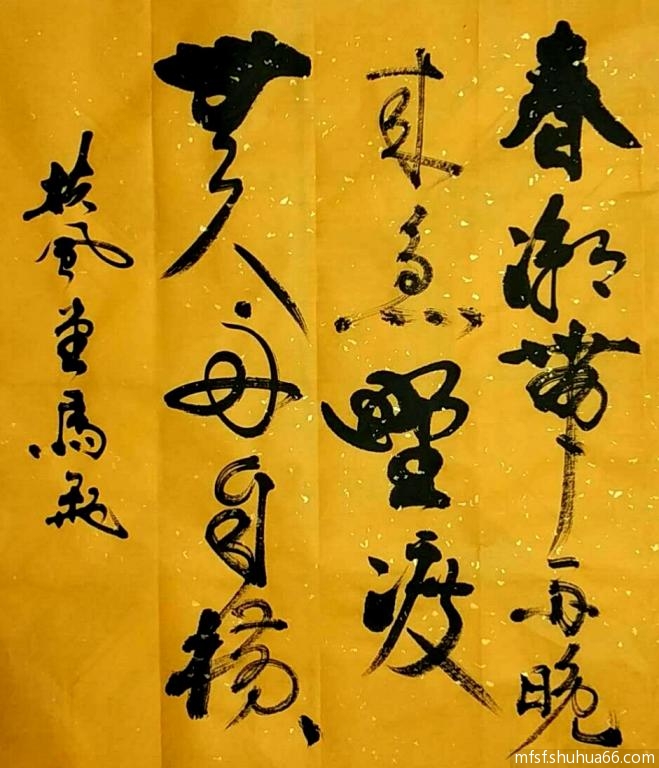 春潮帶雨晚
来急野渡
無人舟自横
扶風堂馬
mfsf.shuhua66.com